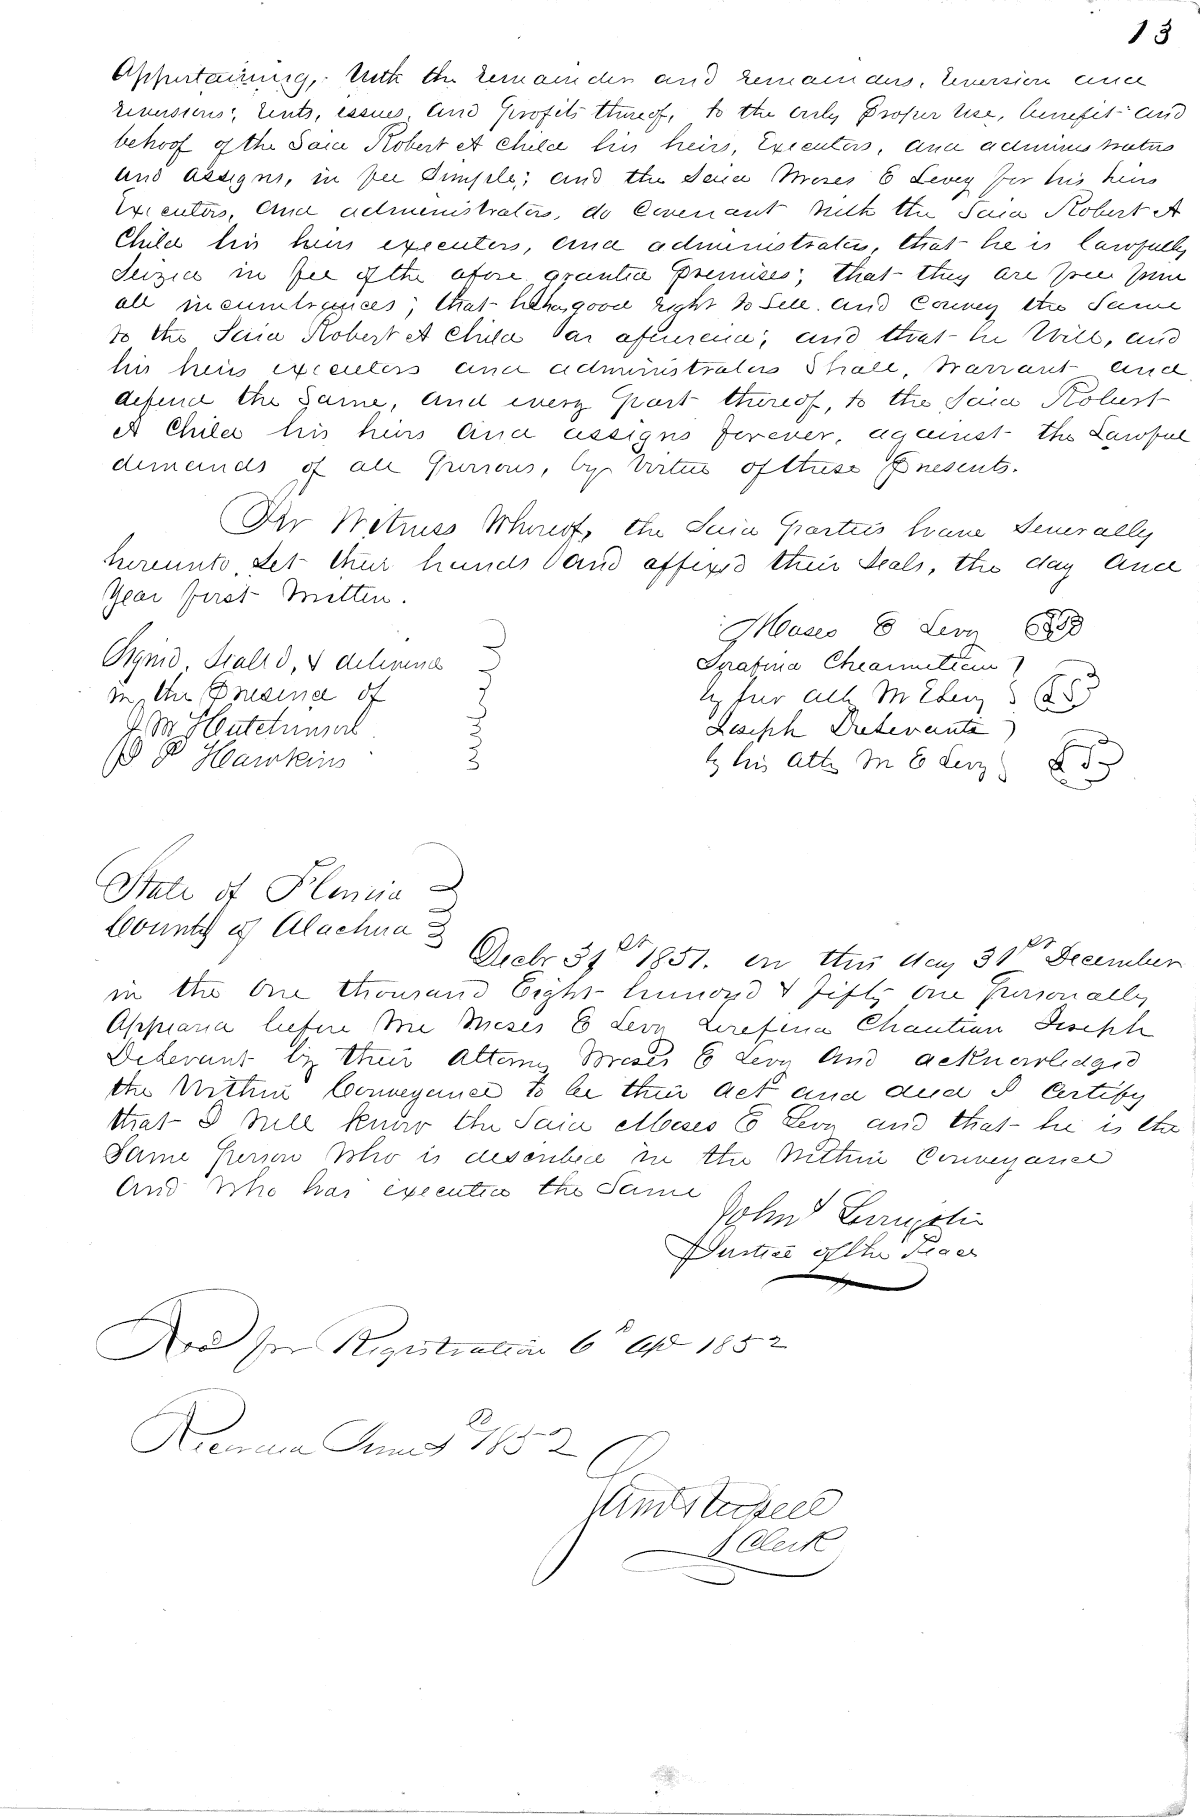 13
Appertaining, With the remainder and remainders, reversion and
reversions; rents, issues, and profits thereof, to the only proper use, benefit and
behoof of the Said Robert A Child his heirs, Executors, and administrators
and assigns, in fee Simple; and the Said Moses E Levy for his heirs
Executors, and administrators, do Covenant with the Said Robert A
Child his heirs executors, and administrators, that he is lawfully
Seized in fee of the afore granted premises; that they are free from
all incumbrances; that he has good right to Sell and Convey the Same
to the Said Robert A Child as aforesaid; and that he Will, and
his heirs executors and administrators Shall, Warrant and
defend the Same, and every part thereof, to the Said Robert
A Child his heirs and assigns forever, against the Lawful
demands of all persons, by Virtue of these presents.
In Witness Whereof, the Said parties have Severally
hereunto Set their hands and affixed their Seals, the day and
Year first Written.
Signed, Seald, & delivered
in the Presence of
J M Hutchinson
P P Hawkins
Moses E Levy
Serafina
by her atty M E Levy LS
Joseph Delevante
by his atty M E Levy LS
State of Florida
County of Alachua
Decbr 31st 1851. on this day 31st December
in the One thousand Eight hundred & fifty one personally
Appeared before me Moses E Levy Serefina Joseph
Delevant by their attorney Moses E Levy and acknowledged
the Within Conveyance to be their act and deed I Certify
that I Well know the Said Moses E Levy and that he is the
Same person Who is described in the Within Conveyance
and who has executed the Same
John
Justice of the Peace
Recd for Registration 6th Apl 1852
Recorded June 1852
Clerk